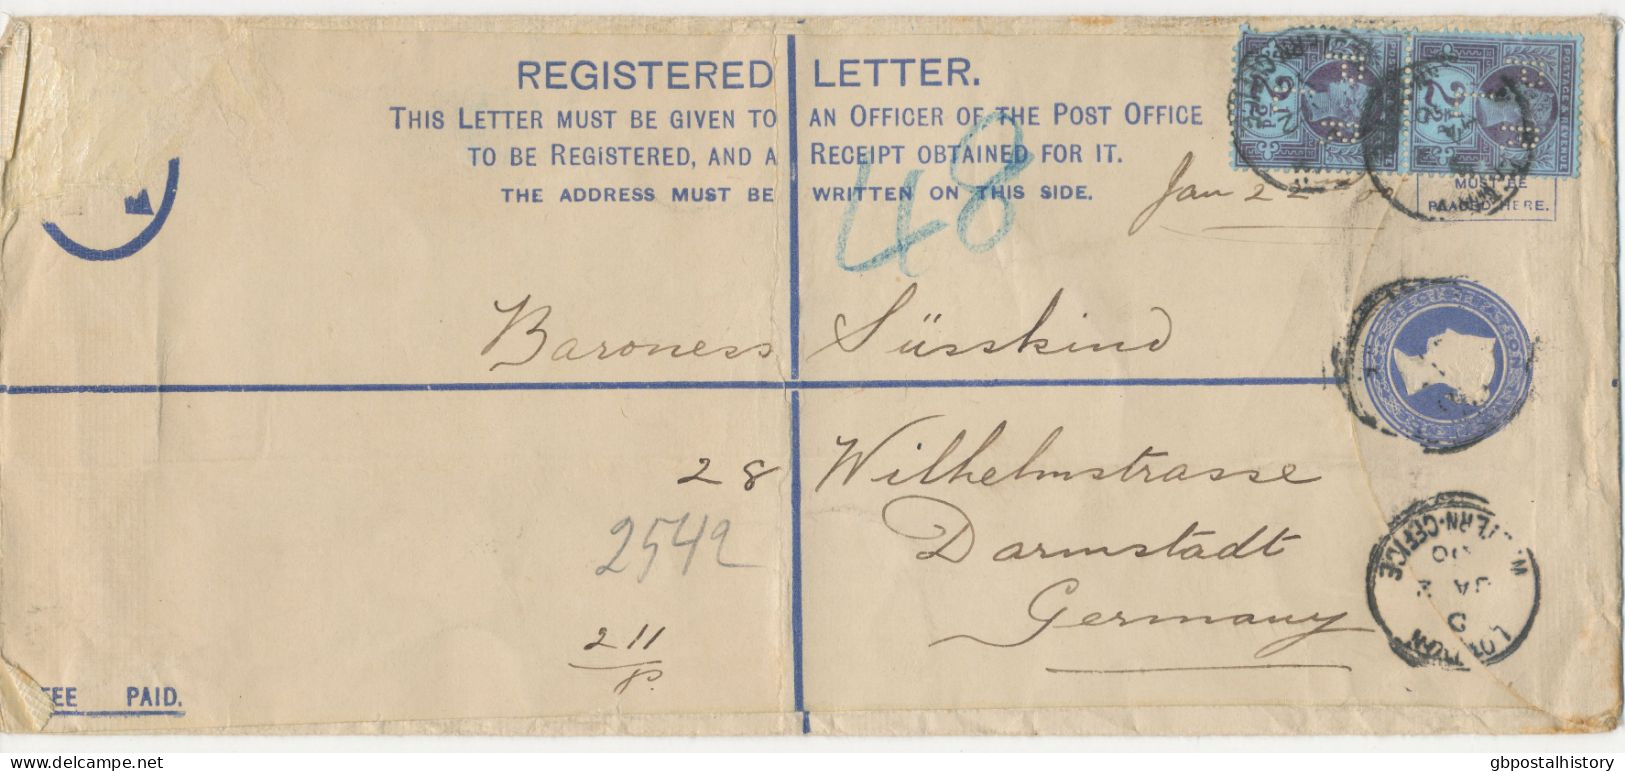 REGISTERED LETTER.
THIS LETTER MUST BE GIVEN TO AN OFFICER OF THE POST OFFICE
TO BE REGISTERED, AND A RECEIPT OBTAINED FOR IT.
THE ADDRESS MUST BE WRITTEN ON THIS SIDE.
MUST BE
PLACED HERE.
POSTAGE & REVENUE
48
Jan 22
Baroness Süsskind
28 Wilhelmstrasse
Darmstadt
Germany
2542
211
P.
FEE PAID.
WESTERN·OFFICE
JA 2
00
LONDON
gbpostalhistory